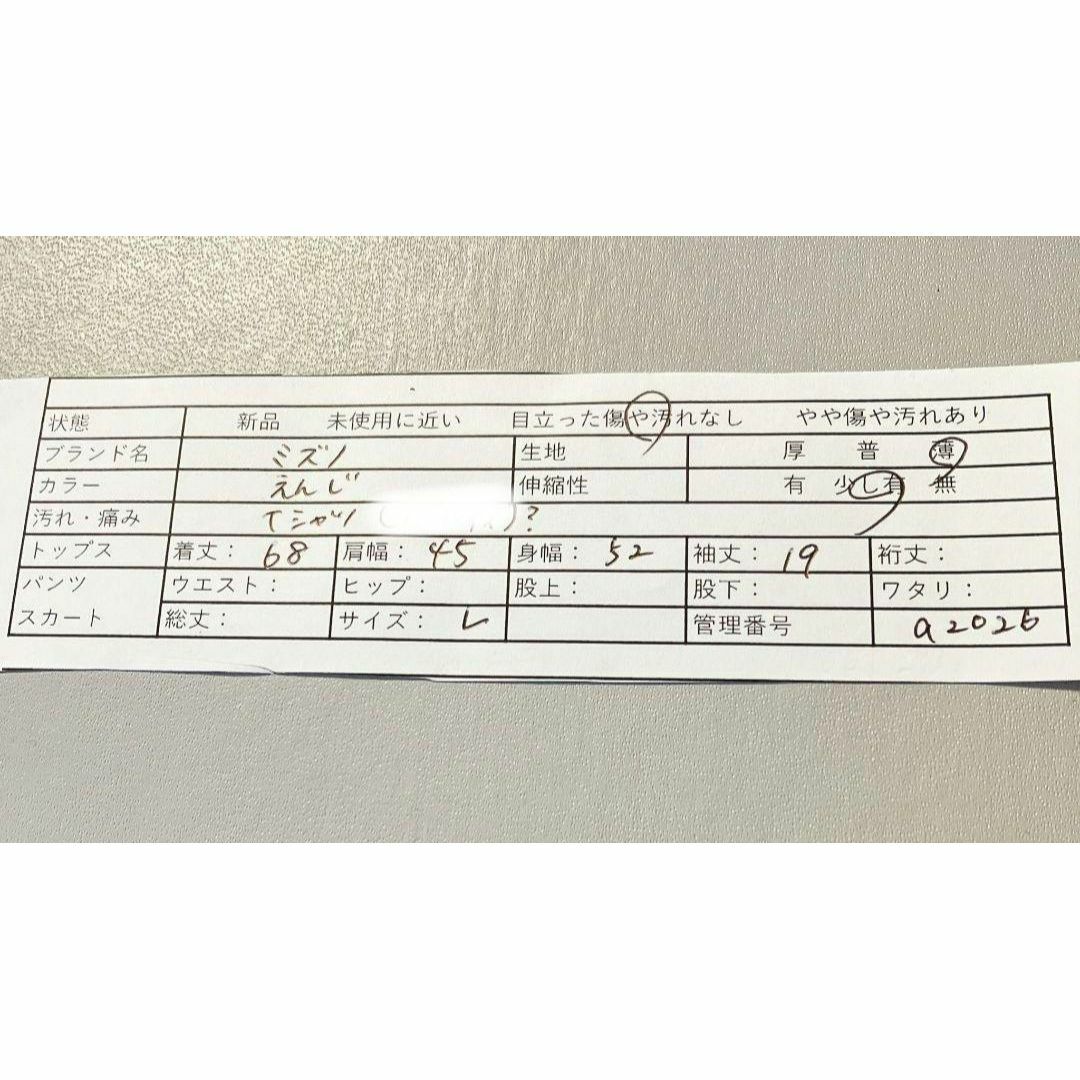 状態 新品 未使用に近い 目立った傷や汚れなし やや傷や汚れあり
ブランド名 ミズノ 生地 厚 普 薄
カラー えんじ 伸縮性 有 少し有 無
汚れ・痛み Tシャツ ( )?
トップス 着丈: 68 肩幅: 45 身幅: 52 袖丈: 19 裄丈:
パンツ ウエスト: ヒップ: 股上: 股下: ワタリ:
スカート 総丈: サイズ: L 管理番号 a2026